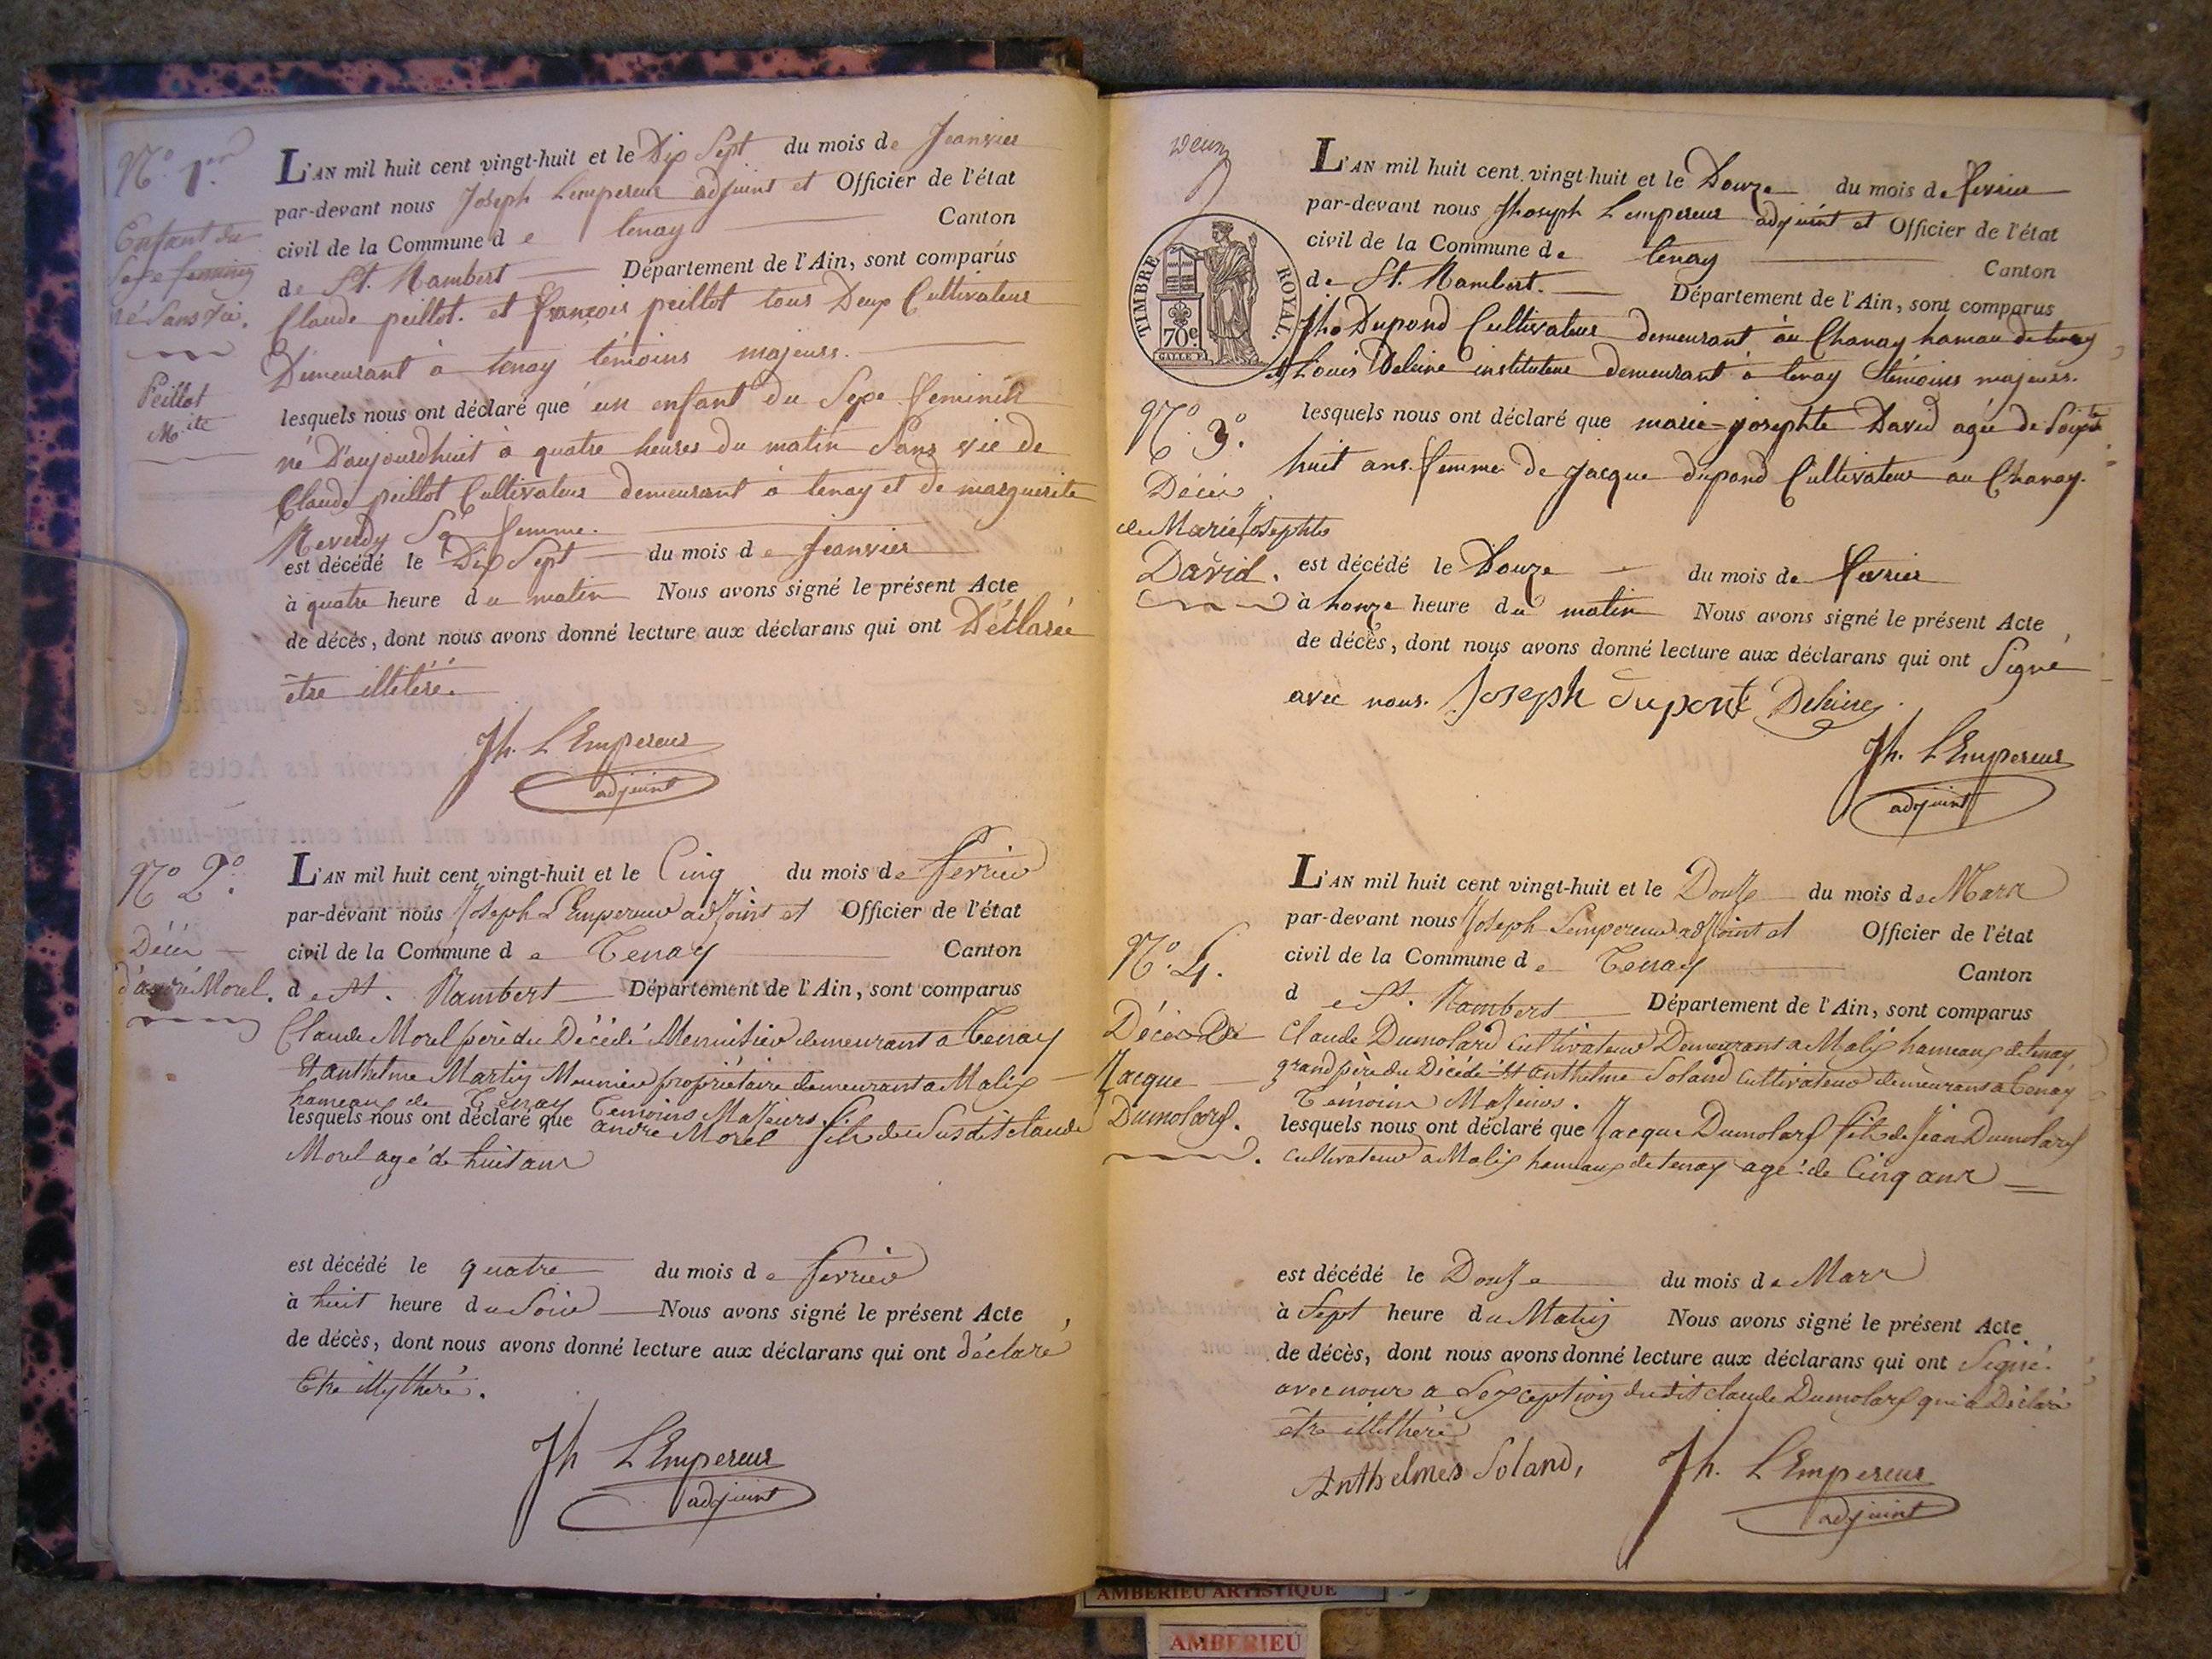 N.o 1.er
Enfant du
Sexe feminin
né Sans vie.
Peillot
M.ite
L'AN mil huit cent vingt-huit et le Dix Sept du mois de Jeanvier
par-devant nous Joseph Lempereur adjoint et Officier de l'état
civil de la Commune de tenay Canton
de St. Rambert Département de l'Ain, sont comparus
Claude peillot. et françois peillot tous Deux Cultivateur
Demeurant à tenay témoins majeurs.
lesquels nous ont déclaré que un enfant du Sexe feminin
né D'aujourdhuit à quatre heures du matin Sans vie de
Claude peillot Cultivateur demeurant à tenay et de marguerite
Reverdy Sa femme.
est décédé le Dix Sept du mois de Jeanvier
à quatre heure du matin Nous avons signé le présent Acte
de décès, dont nous avons donné lecture aux déclarans qui ont Déclarée
être illétéré.
Jh. L'Empereur
adjoint
N.o 2.o
Décès
d'andré Morel.
L'AN mil huit cent vingt-huit et le Cinq du mois de fevrier
par-devant nous Joseph L'Empereur adjoint et Officier de l'état
civil de la Commune de Tenay Canton
de St. Rambert Département de l'Ain, sont comparus
Claude Morel père du Décédé Menuisier demeurant a Tenay
Et anthelme Martin Meunier propriétaire demeurant a Malix
hameau de Tenay Temoins Majeurs.
lesquels nous ont déclaré que andre Morel fils du Susdit Claude
Morel agé de huit ans
est décédé le quatre du mois de fevrier
à huit heure du Soir Nous avons signé le présent Acte
de décès, dont nous avons donné lecture aux déclarans qui ont déclaré
Etre illytheré.
Jh L'Empereur
adjoint
deux
TIMBRE ROYAL.
70c
N.o 3.o
Décès
de Marie Josephte
David.
L'AN mil huit cent vingt-huit et le Douze du mois de fevrier
par-devant nous Jhoseph Lempereur adjoint et Officier de l'état
civil de la Commune de tenay Canton
de St. Rambert. Département de l'Ain, sont comparus
Jh. Dupond Cultivateur demeurant au Chanay hamau de tenay
et Louis Deleine instituteur demeurant à tenay témoins majeurs.
lesquels nous ont déclaré que marie-josephte David agée de Soixte
huit ans. femme de jacque dupond Cultivateur au Chanay.
est décédé le Douze du mois de fevrier
à honze heure du matin Nous avons signé le présent Acte
de décès, dont nous avons donné lecture aux déclarans qui ont Signé
avec nous. Joseph Dupont
Jh. L'Empereur
adjoint
N.o 4.
Décès De
Jacque
Dumolard.
L'AN mil huit cent vingt-huit et le Douze du mois de Mars
par-devant nous Joseph Lempereur adjoint et Officier de l'état
civil de la Commune de Tenay Canton
de St. Rambert Département de l'Ain, sont comparus
Claude Dumolard Cultivateur Demeurant a Malix hameaux de tenay
grand père du Décédé Et anthelme Soland Cultivateur demeurant a Tenay
Témoins Majeurs.
lesquels nous ont déclaré que Jacque Dumolard fils de Jean Dumolard
Cultivateur a Malix hameaux de tenay agé de Cinq ans
est décédé le Douze du mois de Mars
à Sept heure du Matin Nous avons signé le présent Acte
de décès, dont nous avons donné lecture aux déclarans qui ont Signé.
avec nous a Lexception dudit Claude Dumolard qui a Déclaré
être illitheré
Anthelmes Soland,
Jh. L'Empereur
adjoint
AMBERIEU ARTISTIQUE
AMBERIEU